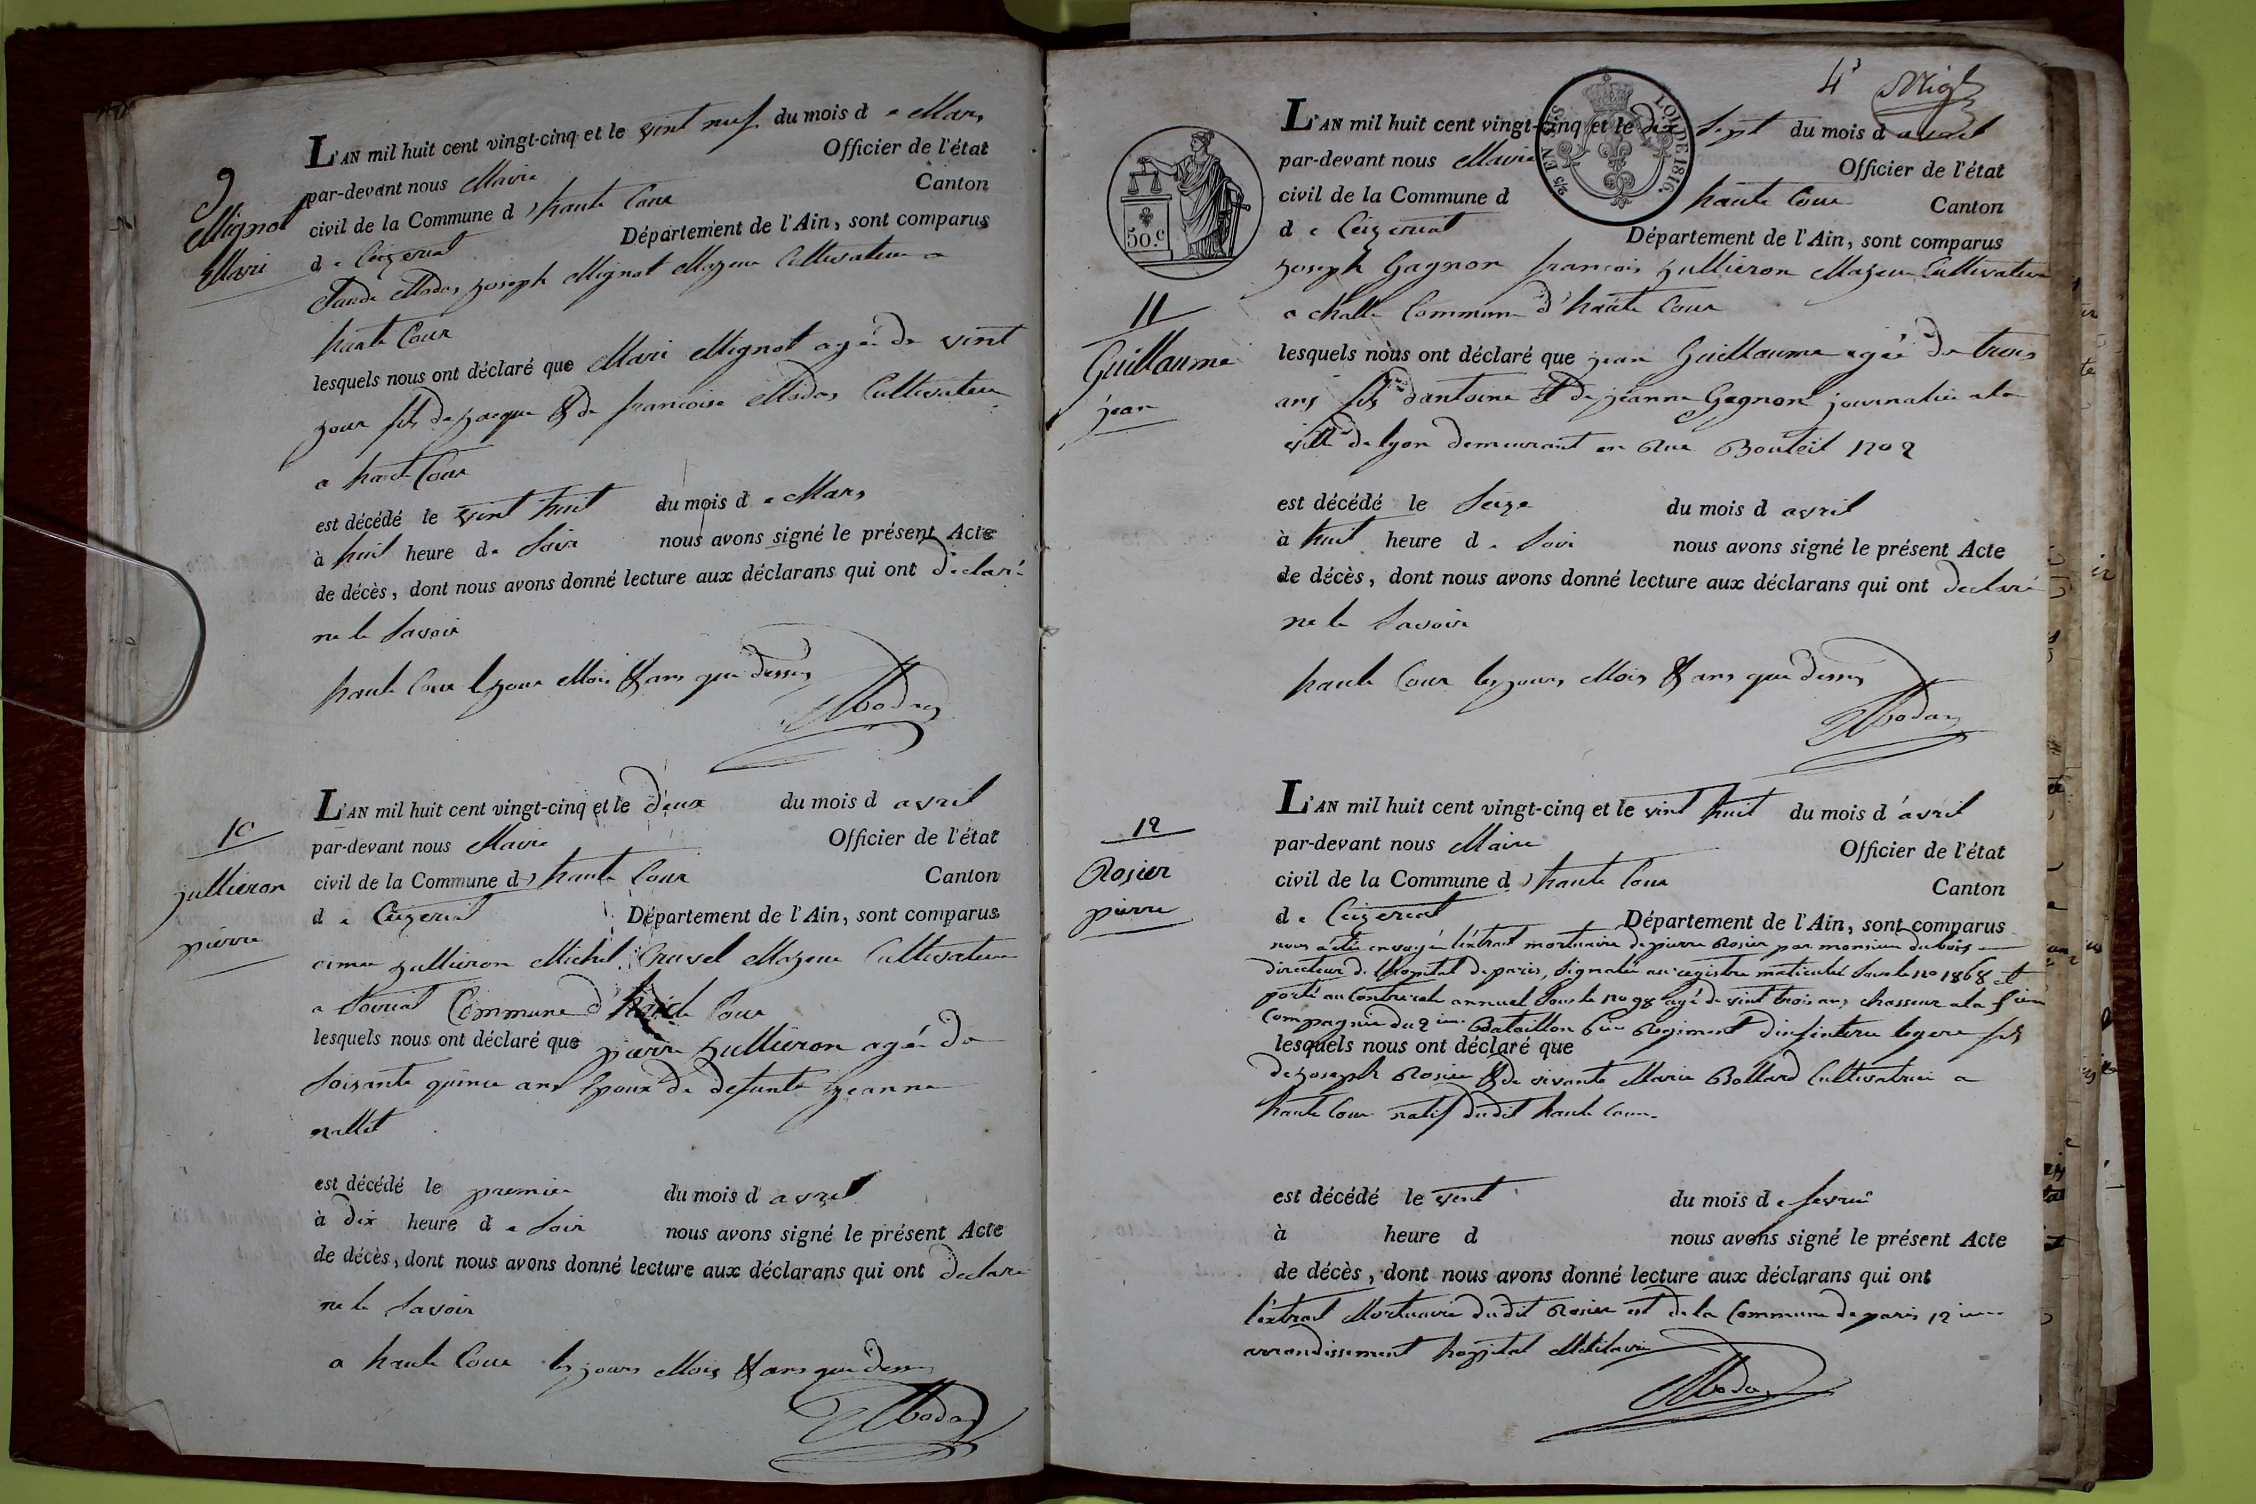 9
Mignot
Marie
L'AN mil huit cent vingt-cinq et le vint neuf du mois d e Mars
par-devant nous Maire Officier de l'état
civil de la Commune d haute Cour Canton
d e Ceizeriat Département de l'Ain, sont comparus
Claude Modas joseph Mignot Majeur Cultivateur a
haute Cour
lesquels nous ont déclaré que Marie Mignot agée de vint
jour fils de jacque & de francoise Modas Cultivateur
a haute Cour
est décédé le vint huit du mois d e Mars
à huit heure de Soir nous avons signé le présent Acte
de décès, dont nous avons donné lecture aux déclarans qui ont declaré
ne le Savoir
haute Cour les jour Mois & ans que dessus
Modas
10
jullieron
pierre
L'AN mil huit cent vingt-cinq et le deux du mois d avril
par-devant nous Maire Officier de l'état
civil de la Commune d haute Cour Canton
d e Ceizeriat Département de l'Ain, sont comparus
jullieron Michel Majeur Cultivateur
a Commune d'haute Cour
lesquels nous ont déclaré que pierre jullieron agé de
Soisante quince ans Epoux de defunte jeanne
nallet
est décédé le premier du mois d avril
à dix heure d e Soir nous avons signé le présent Acte
de décès, dont nous avons donné lecture aux déclarans qui ont declare
ne le Savoir
a haute Cour les jours Mois & ans que dessus
Modas
4
50.c
LOI DE 1816.
L'AN mil huit cent vingt-cinq et le dix Sept du mois d avril
par-devant nous Maire Officier de l'état
civil de la Commune d haute Cour Canton
d e Ceizeriat Département de l'Ain, sont comparus
joseph Gagnon francois jullieron Majeur Cultivateur
a challe Commune d'haute Cour
11
Guillaume
jean
lesquels nous ont déclaré que jean Guillaume agée de trois
ans fils d'antoine et de jeanne Gagnon journalier a la
ville de lyon demeurant en Rue Bouteil
est décédé le Seize du mois d avril
à huit heure d e Soir nous avons signé le présent Acte
de décès, dont nous avons donné lecture aux déclarans qui ont declaré
ne le Savoir
haute Cour les jours Mois & ans que dessus
Modas
12
Rosier
pierre
L'AN mil huit cent vingt-cinq et le vint huit du mois d'avril
par-devant nous Maire Officier de l'état
civil de la Commune d haute Cour Canton
d e Ceizeriat Département de l'Ain, sont comparus
nous a été envoyé l'extrait mortuaire de pierre Rosier par monsieur dubois
directeur de l'hopital de paris, Signalée au registre matricule Sous le no 1868 et
porté au Controle annuel Sous le no 98 agé de vint trois ans chasseur a la
Compagnie du 2 ieme Bataillon 6 ieme Regiment d'infenterie legere fils
lesquels nous ont déclaré que
de joseph Rosier & de vivante Marie Bollard Cultivatrice a
haute Cour natif dudit haute Cour
est décédé le vint du mois d e fevrié
à heure d nous avons signé le présent Acte
de décès, dont nous avons donné lecture aux déclarans qui ont
l'extrait Mortuaire dudit Rosier est de la Commune de paris 12 ieme
arrondissement hopital Militaire
Modas